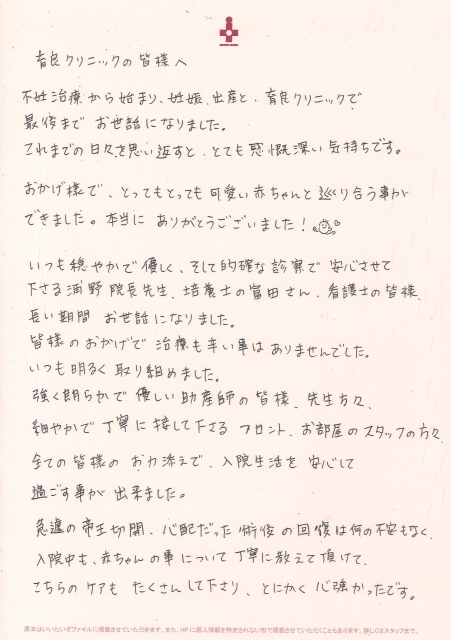 育良クリニックの皆様へ
不妊治療から始まり、妊娠、出産と、育良クリニックで
最後まで お世話になりました。
これまでの日々を思い返すと、とても感慨深い気持ちです。
おかげ様で、とってもとっても可愛い赤ちゃんと巡り合う事が
できました。本当に ありがとうございました!
いつも穏やかで優しく、そして的確な診察で 安心させて
下さる浦野院長先生、培養士の富田さん、看護士の皆様、
長い期間 お世話になりました。
皆様のおかげで 治療も辛い事はありませんでした。
いつも明るく取り組めました。
強く朗らかで 優しい助産師の皆様、先生方々、
細やかで丁寧に接して下さる フロント、お部屋のスタッフの方々、
全ての皆様の お力添えで、入院生活を 安心して
過ごす事が 出来ました。
急遽の帝王切開、心配だった術後の回復は何の不安もなく、
入院中も、赤ちゃんの事について丁寧に教えて頂けて、
こちらのケアも たくさんして下さり、とにかく心強かったです。
原本はいいたいぞファイルに掲載させていただきます。また、HPに個人情報を特定されない形で掲載させていただくこともあります。詳しくはスタッフまで。